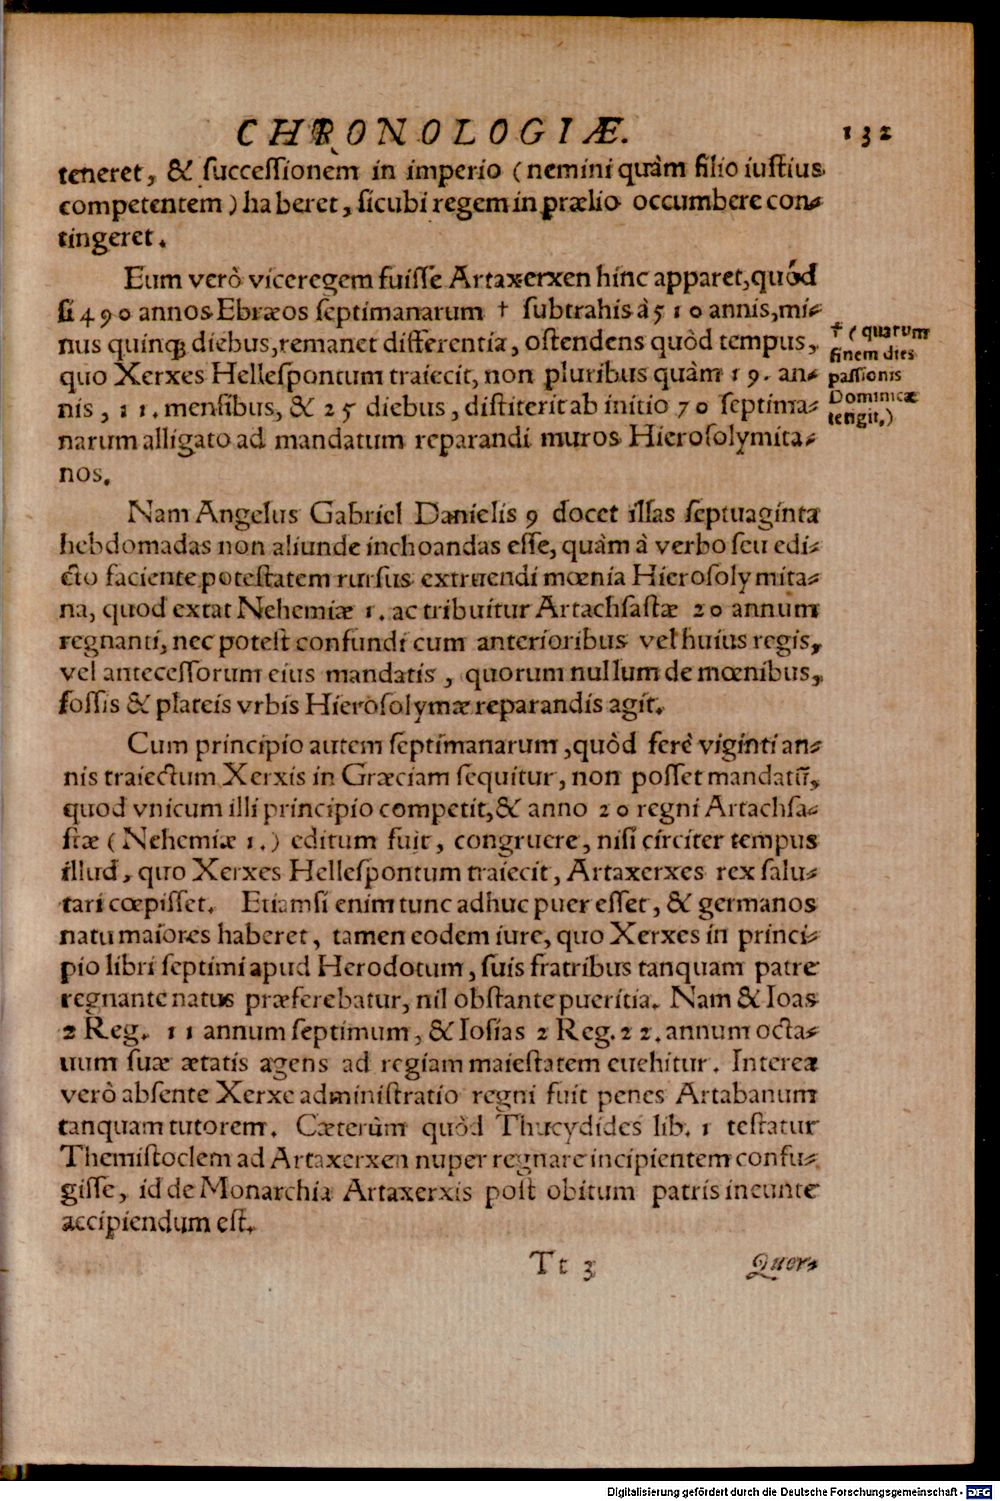 CHRONOLOGIÆ. 132
teneret, & ſucceſſionem in imperio (nemini quàm filio iuſtius
competentem) haberet, ſicubi regem in prælio occumbere con-
tingeret.
Eum verò viceregem fuiſſe Artaxerxen hinc apparet, quód
ſi 490 annos Ebræos ſeptimanarum † ſubtrahis à 510 annis, mi-
nus quinq; diebus, remanet differentia, oſtendens quòd tempus,
quo Xerxes Helleſpontum traiecit, non pluribus quàm 19. an-
nis, 11. menſibus, & 25 diebus, diſtiterit ab initio 70 ſeptima-
narum alligato ad mandatum reparandi muros Hieroſolymita-
nos.
† (quarum
finem dies
paſſionis
Dominicæ
tengit.)
Nam Angelus Gabriel Danielis 9 docet illas ſeptuaginta
hebdomadas non aliunde inchoandas eſſe, quàm à verbo ſeu edi-
cto faciente poteſtatem rurſus extruendi mœnia Hieroſolymita-
na, quod extat Nehemiæ 1. ac tribuitur Artachſaſtæ 20 annum
regnanti, nec poteſt confundi cum anterioribus vel huius regis,
vel anteceſſorum eius mandatis, quorum nullum de mœnibus,
foſſis & plateis vrbis Hieroſolymæ reparandis agit.
Cum principio autem ſeptimanarum, quòd ferè viginti an-
nis traiectum Xerxis in Græciam ſequitur, non poſſet mandatũ,
quod vnicum illi principio competit, & anno 20 regni Artachſa-
ſtæ (Nehemiæ 1.) editum fuit, congruere, niſi circiter tempus
illud, quo Xerxes Helleſpontum traiecit, Artaxerxes rex ſalu-
tari cœpiſſet. Etiamſi enim tunc adhuc puer eſſet, & germanos
natu maiores haberet, tamen eodem iure, quo Xerxes in princi-
pio libri ſeptimi apud Herodotum, ſuis fratribus tanquam patre
regnante natus præferebatur, nil obſtante pueritia. Nam & Ioas
2 Reg. 11 annum ſeptimum, & Ioſias 2 Reg. 22. annum octa-
uum ſuæ ætatis agens ad regiam maieſtatem euehitur. Interea
verò abſente Xerxe adminiſtratio regni fuit penes Artabanum
tanquam tutorem. Cæterùm quòd Thucydides lib. 1 teſtatur
Themiſtoclem ad Artaxerxen nuper regnare incipientem confu-
giſſe, id de Monarchia Artaxerxis poſt obitum patris ineunte
accipiendum eſt.
Tt 3 Quer-
Digitalisierung gefördert durch die Deutsche Forschungsgemeinschaft - DFG